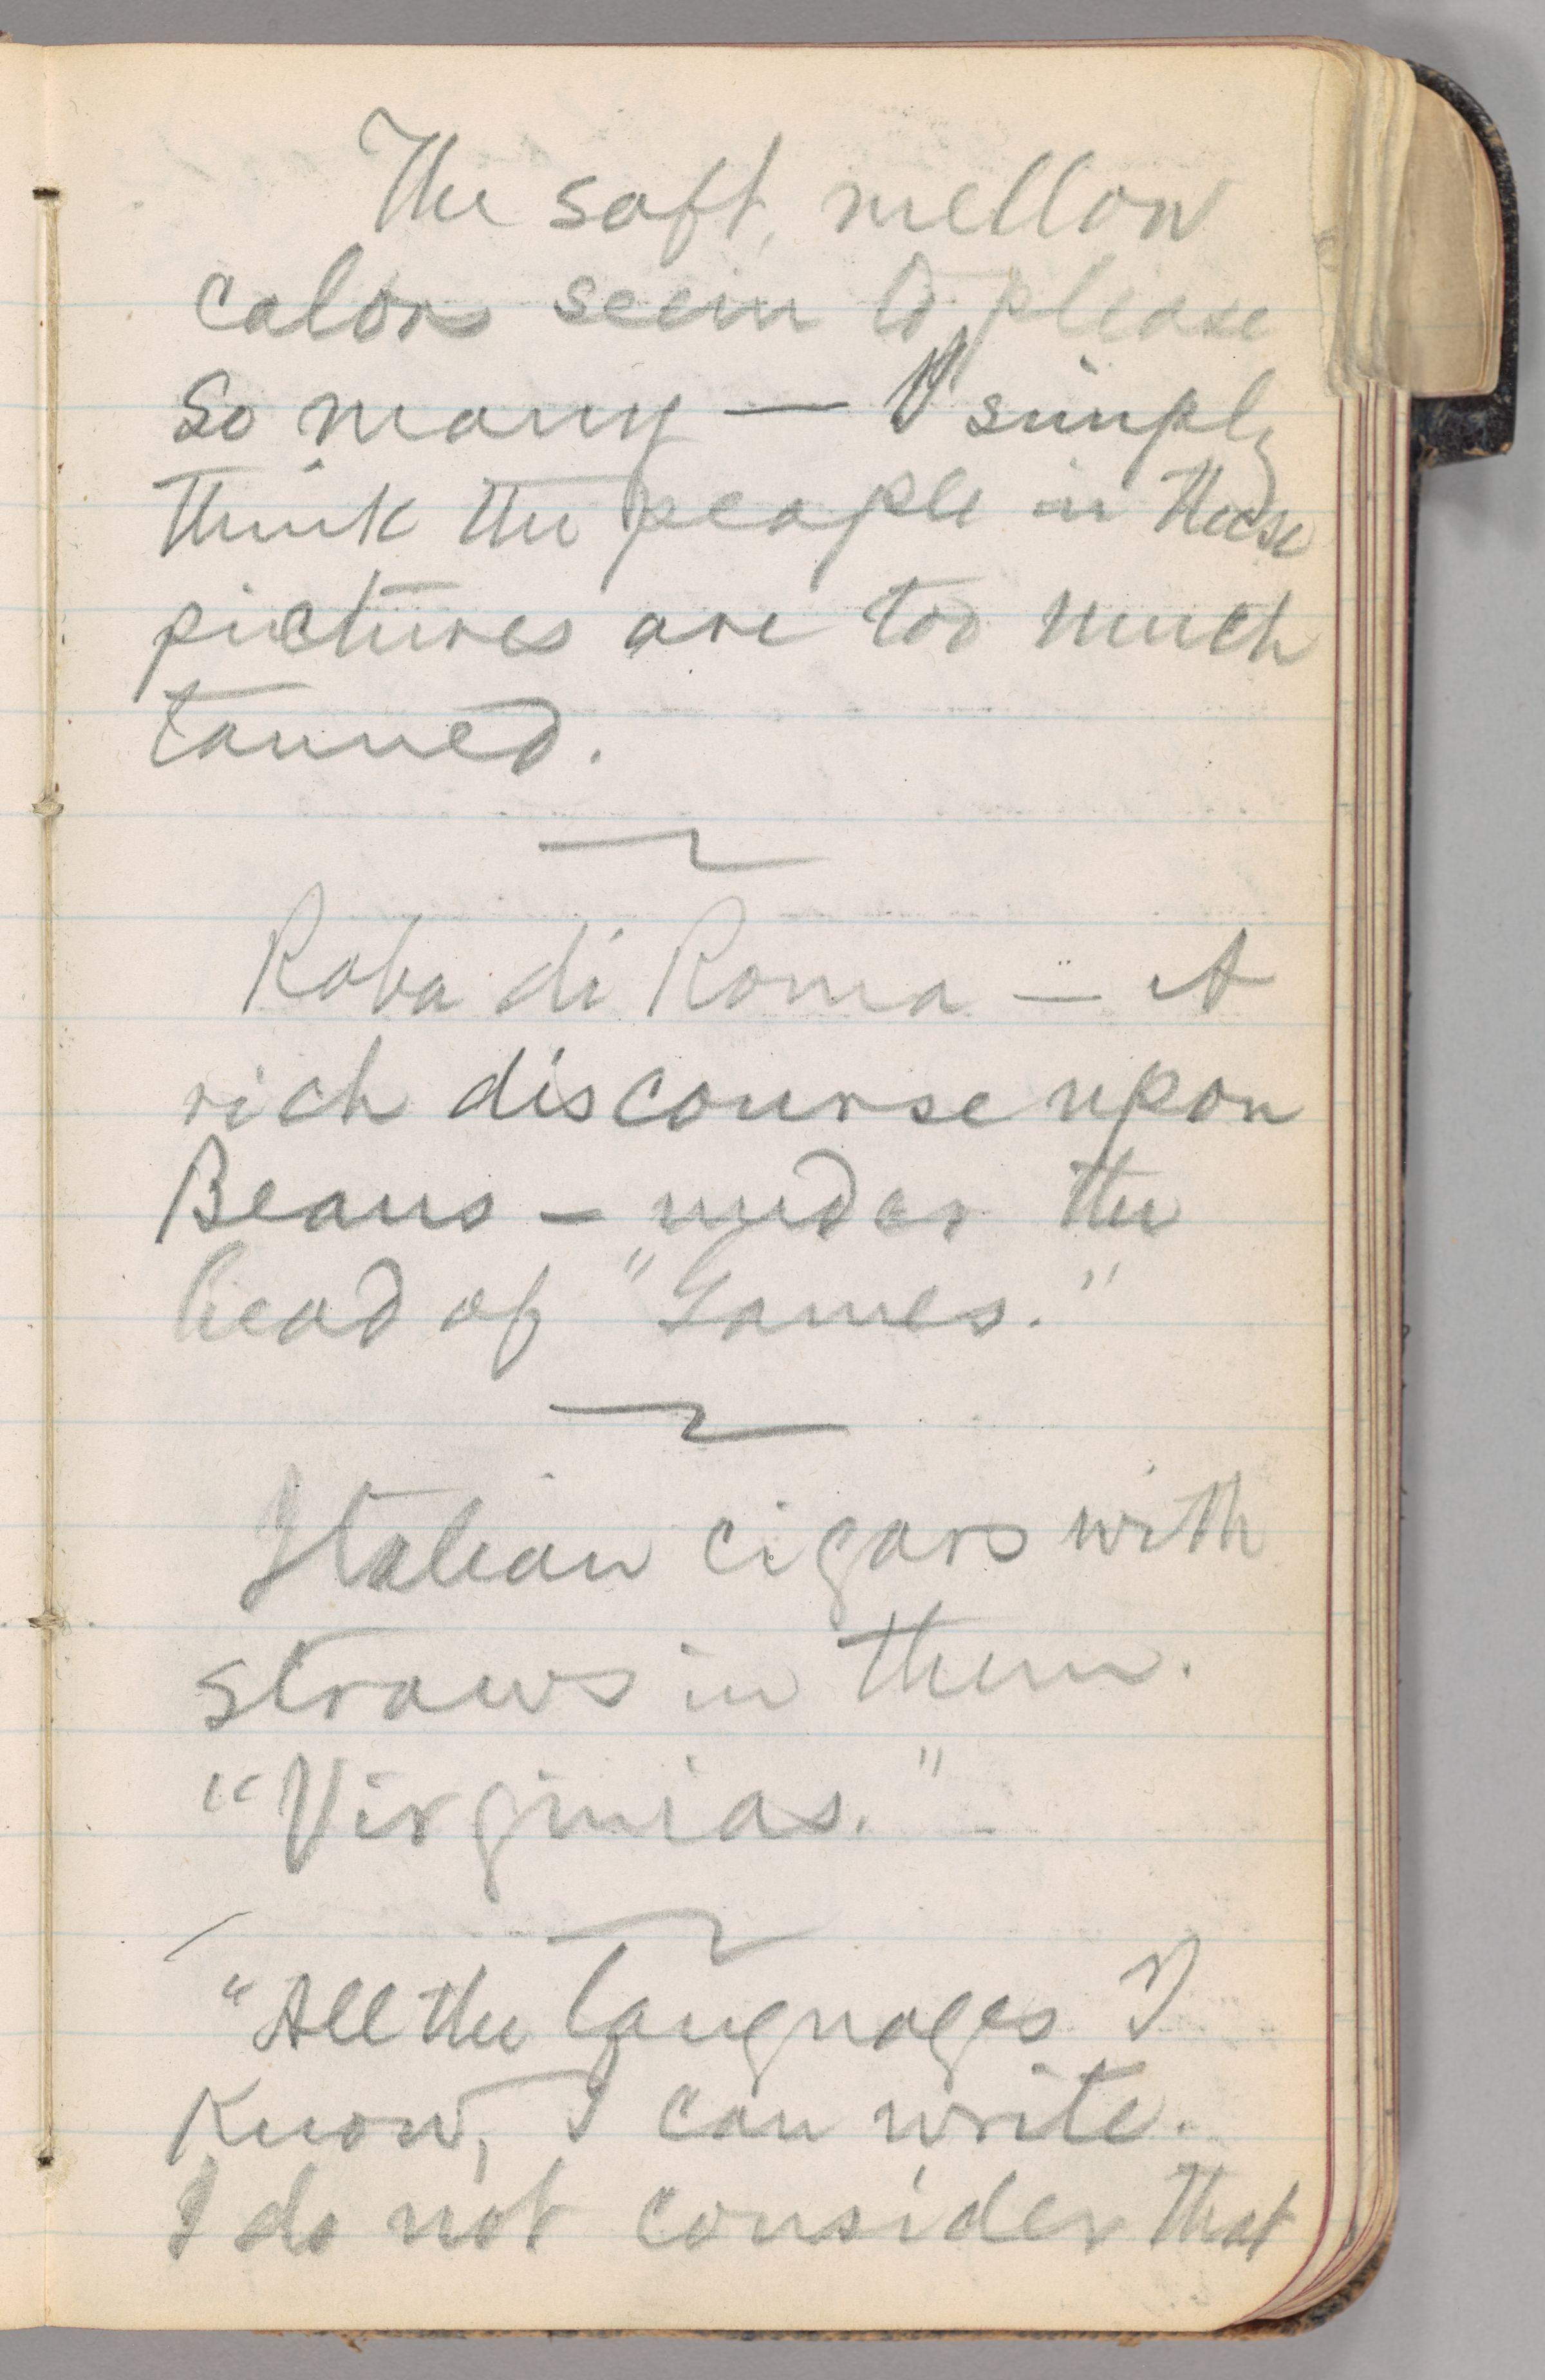 The soft, mellow
colors seem to please
so many — I simply
think the people in these
pictures are too much
tanned.
Roba di Roma — A
rich discourse upon
Beans — under the
head of "Games."
Italian cigars with
straws in them.
"Virginias."
"All the languages I
know, I can write.
I do not consider that